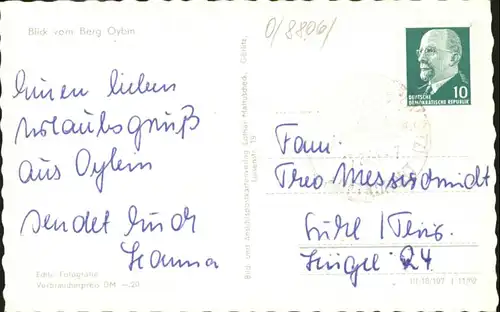 Blick vom Berg Oybin
O/8806/
Einen lieben
Urlaubsgruß
aus Oybin
sendet Euch
Hanna
Echte Fotografie
Verbraucherpreis DM —.20
Bild- und Ansichtskartenverlag Lothar Görlitz,
10
DEUTSCHE
DEMOKRATISCHE REPUBLIK
Fam.
Theo Messerschmidt
Suhl / Thür.
24